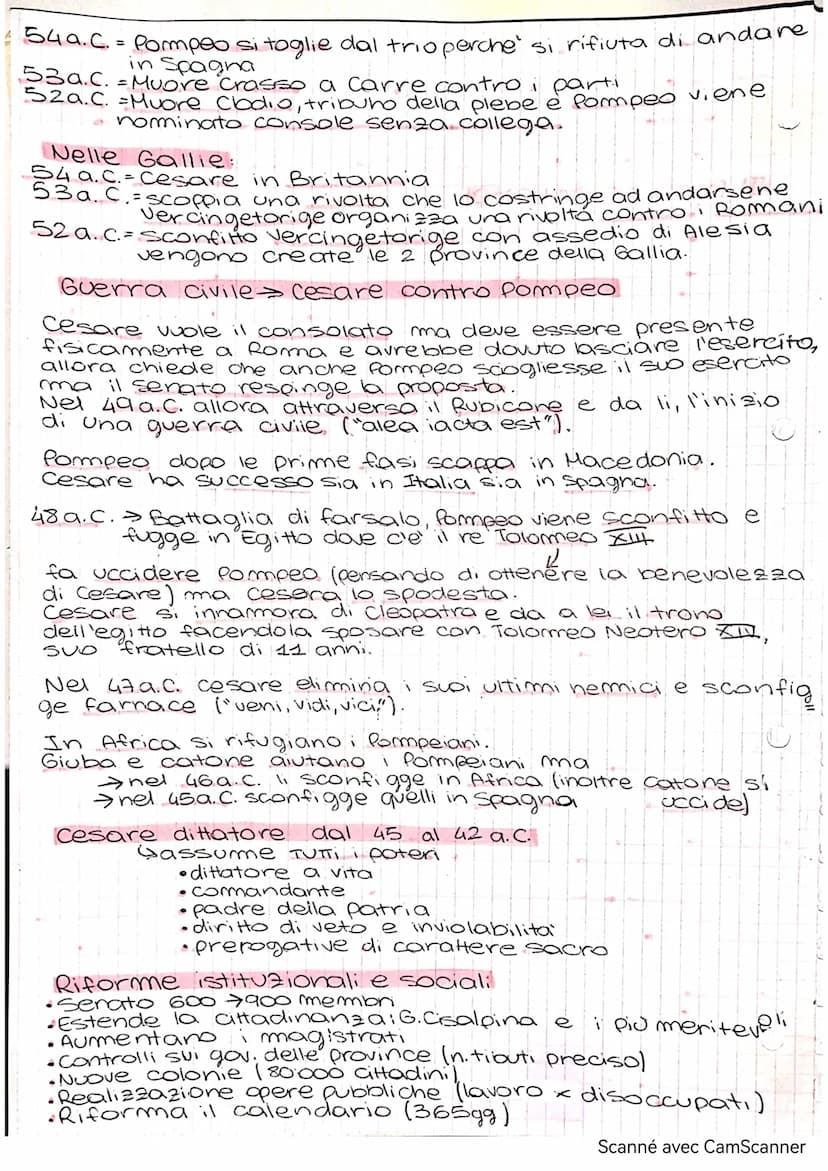 54 a.C. = Pompeo si toglie dal trio perchè si rifiuta di andare
in Spagna
53a.C. = Muore Crasso a Carre contro i parti
52a.C. = Muore Clodio, tribuno della plebe e Pompeo viene
nominato console senza collega.
Nelle Gallie:
54 a.C. = Cesare in Britannia
53a.C. = scoppia una rivolta che lo costringe ad andarsene
Vercingetorige organizza una rivolta contro i Romani
52 a.C. = Sconfitto Vercingetorige con assedio di Alesia
vengono create le 2 province della Gallia.
Guerra civile → Cesare contro Pompeo
Cesare vuole il consolato ma deve essere presente
fisicamente a Roma e avrebbe dovuto lasciare l'esercito,
allora chiede che anche Pompeo sciogliesse il suo esercito
ma il senato respinge la proposta.
Nel 49 a.C. allora attraversa il Rubicone e da li, l'inizio
di una guerra civile ("alea iacta est").
Pompeo dopo le prime fasi scappa in Macedonia.
Cesare ha successo sia in Italia sia in Spagna.
48 a.C. → Battaglia di farsalo, Pompeo viene sconfitto e
fugge in Egitto dove c'è il re Tolomeo XIII
↓
fa uccidere Pompeo (pensando di ottenere la benevolezza
di Cesare) ma Cesera lo spodesta.
Cesare si innamora di Cleopatra e da a lei il trono
dell'egitto facendola sposare con Tolomeo Neotero XIV,
suo fratello di 11 anni.
Nel 47 a.C. cesare elimina i suoi ultimi nemici e sconfig
ge farnace ("veni, vidi, vici").
In Africa si rifugiano i Pompeiani.
Giuba e catone aiutano i Pompeiani ma
→ nel 46 a.C. li sconfigge in Africa (inoltre Catone si
→ nel 45 a.C. sconfigge quelli in Spagna uccide)
Cesare dittatore dal 45 al 42 a.C.
↳ assume TUTTI i poteri
• dittatore a vita
• comandante
• padre della patria
• diritto di veto e inviolabilità
• prerogative di carattere sacro
Riforme istituzionali e sociali
• Senato 600 → 900 membri
• Estende la cittadinanza: G. Cisalpina e i più meritevoli
• Aumentano i magistrati
• Controlli sui gov. delle province (n. tibuti preciso)
• Nuove colonie (80'000 cittadini)
• Realizzazione opere pubbliche (lavoro x disoccupati)
• Riforma il calendario (365gg)
Scanné avec CamScanner